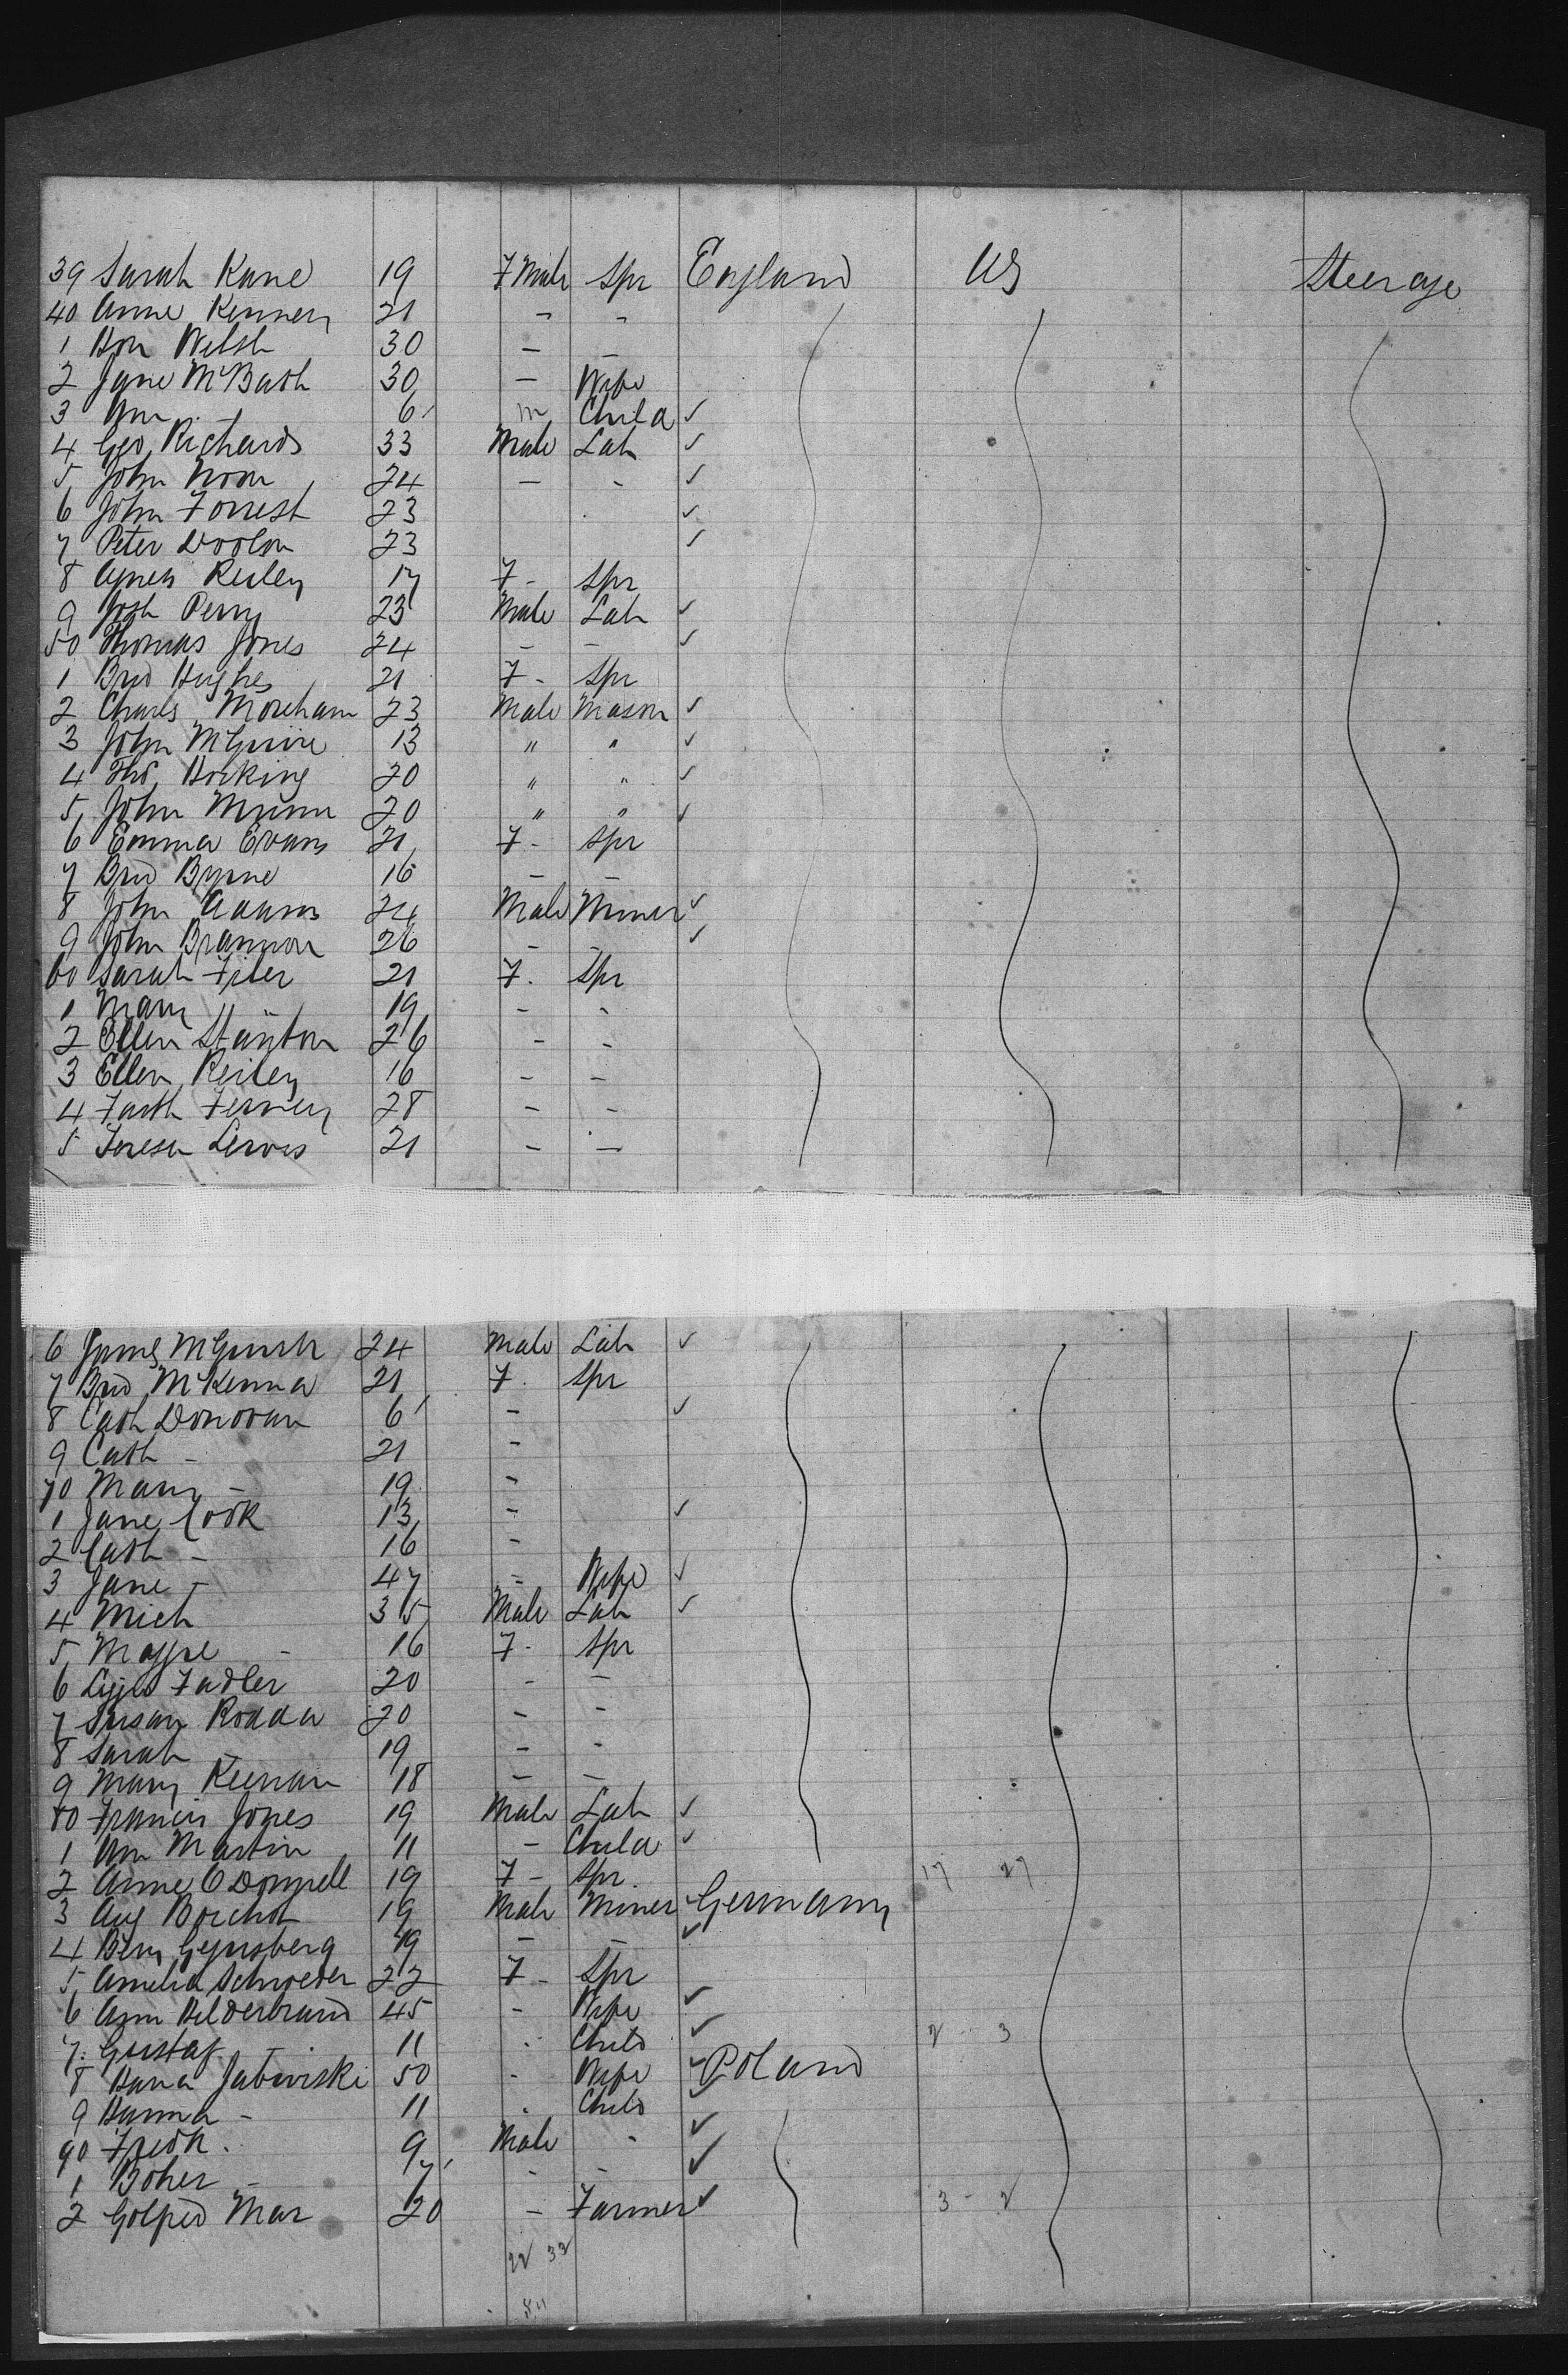 39 Sarah Kane 19 F Male Spr England US Steerage
40 Anne Kenney 21 - -
1 Hon Welsh 30 - -
2 Jane McBath 30 - Wife
3 Ann - 6 m Child ✓
4 Geo Richards 33 Male Lab ✓
5 John Noon 24 - - ✓
6 John Forrest 23 ✓
7 Peter Doolan 23 ✓
8 Agnes Reiley 17 F - Spr
9 Josh Perry 23 Male Lab ✓
50 Thomas Jones 24 - - ✓
1 Brid Hughes 21 F - Spr
2 Charls Moreham 23 Male Mason ✓
3 John McGuire 13 " " ✓
4 Ths Hocking 20 " " ✓
5 John Munn 20 " " ✓
6 Emma Evans 21 F - Spr
7 Brid Byrne 16 - -
8 John Adams 24 Male Miner ✓
9 John Brannon 26 - - ✓
60 Sarah Filer 21 F - Spr
1 Mary - 19 - -
2 Ellen Stanton 26 - -
3 Ellen Reiley 16 - -
4 Ferney 28 - -
5 Teresa Lewis 21 - -
6 James 24 Male Lab ✓
7 Brid McKenna 21 F - Spr
8 Cath Donovan 6 - ✓
9 Cath - 21 -
70 Mary - 19 -
1 Jane Cook 13 - ✓
2 Cath - 16 -
3 Jane - 47 - Wife ✓
4 Mich 35 Male Lab ✓
5 Maggie - 16 F - Spr
6 Lizzie Fadler 20 - -
7 Susan Rodda 20 - -
8 Sarah - 19 - -
9 Mary Keenan 18 - -
80 Francis Jones 19 Male Lab ✓
1 Ann Martin 11 - Child ✓
2 Anne ODonnell 19 F - Spr 17 27
3 Aug Borchot 19 Male Miner ✓ Germany
4 Benj Gynsberg 19 - - ✓
5 Amelia Schroeder 22 F - Spr
6 Ann Hilderbrand 45 - Wife ✓
7 Gustaf - 11 - Child ✓ 2 - 3
8 Hana Jabwiski 50 - Wife ✓ Poland
9 Hanna - 11 - Child ✓
90 Fredk - 9 Male - ✓
1 Boher - 7 - - ✓
2 Golpied Mar 20 - Farmer ✓ 3 - 2
22 32